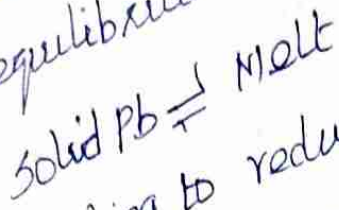 equilibriu
Solid Pb ⇌ Melt
to redu